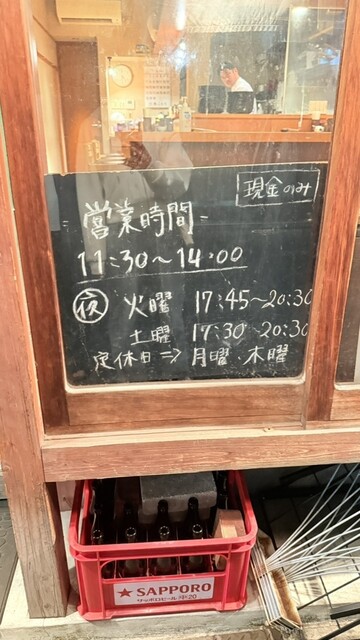 現金のみ
営業時間
11:30〜14:00
夜 火曜 17:45〜20:30
土曜 17:30〜20:30
定休日⇒月曜、木曜
★ SAPPORO
サッポロビール 中20